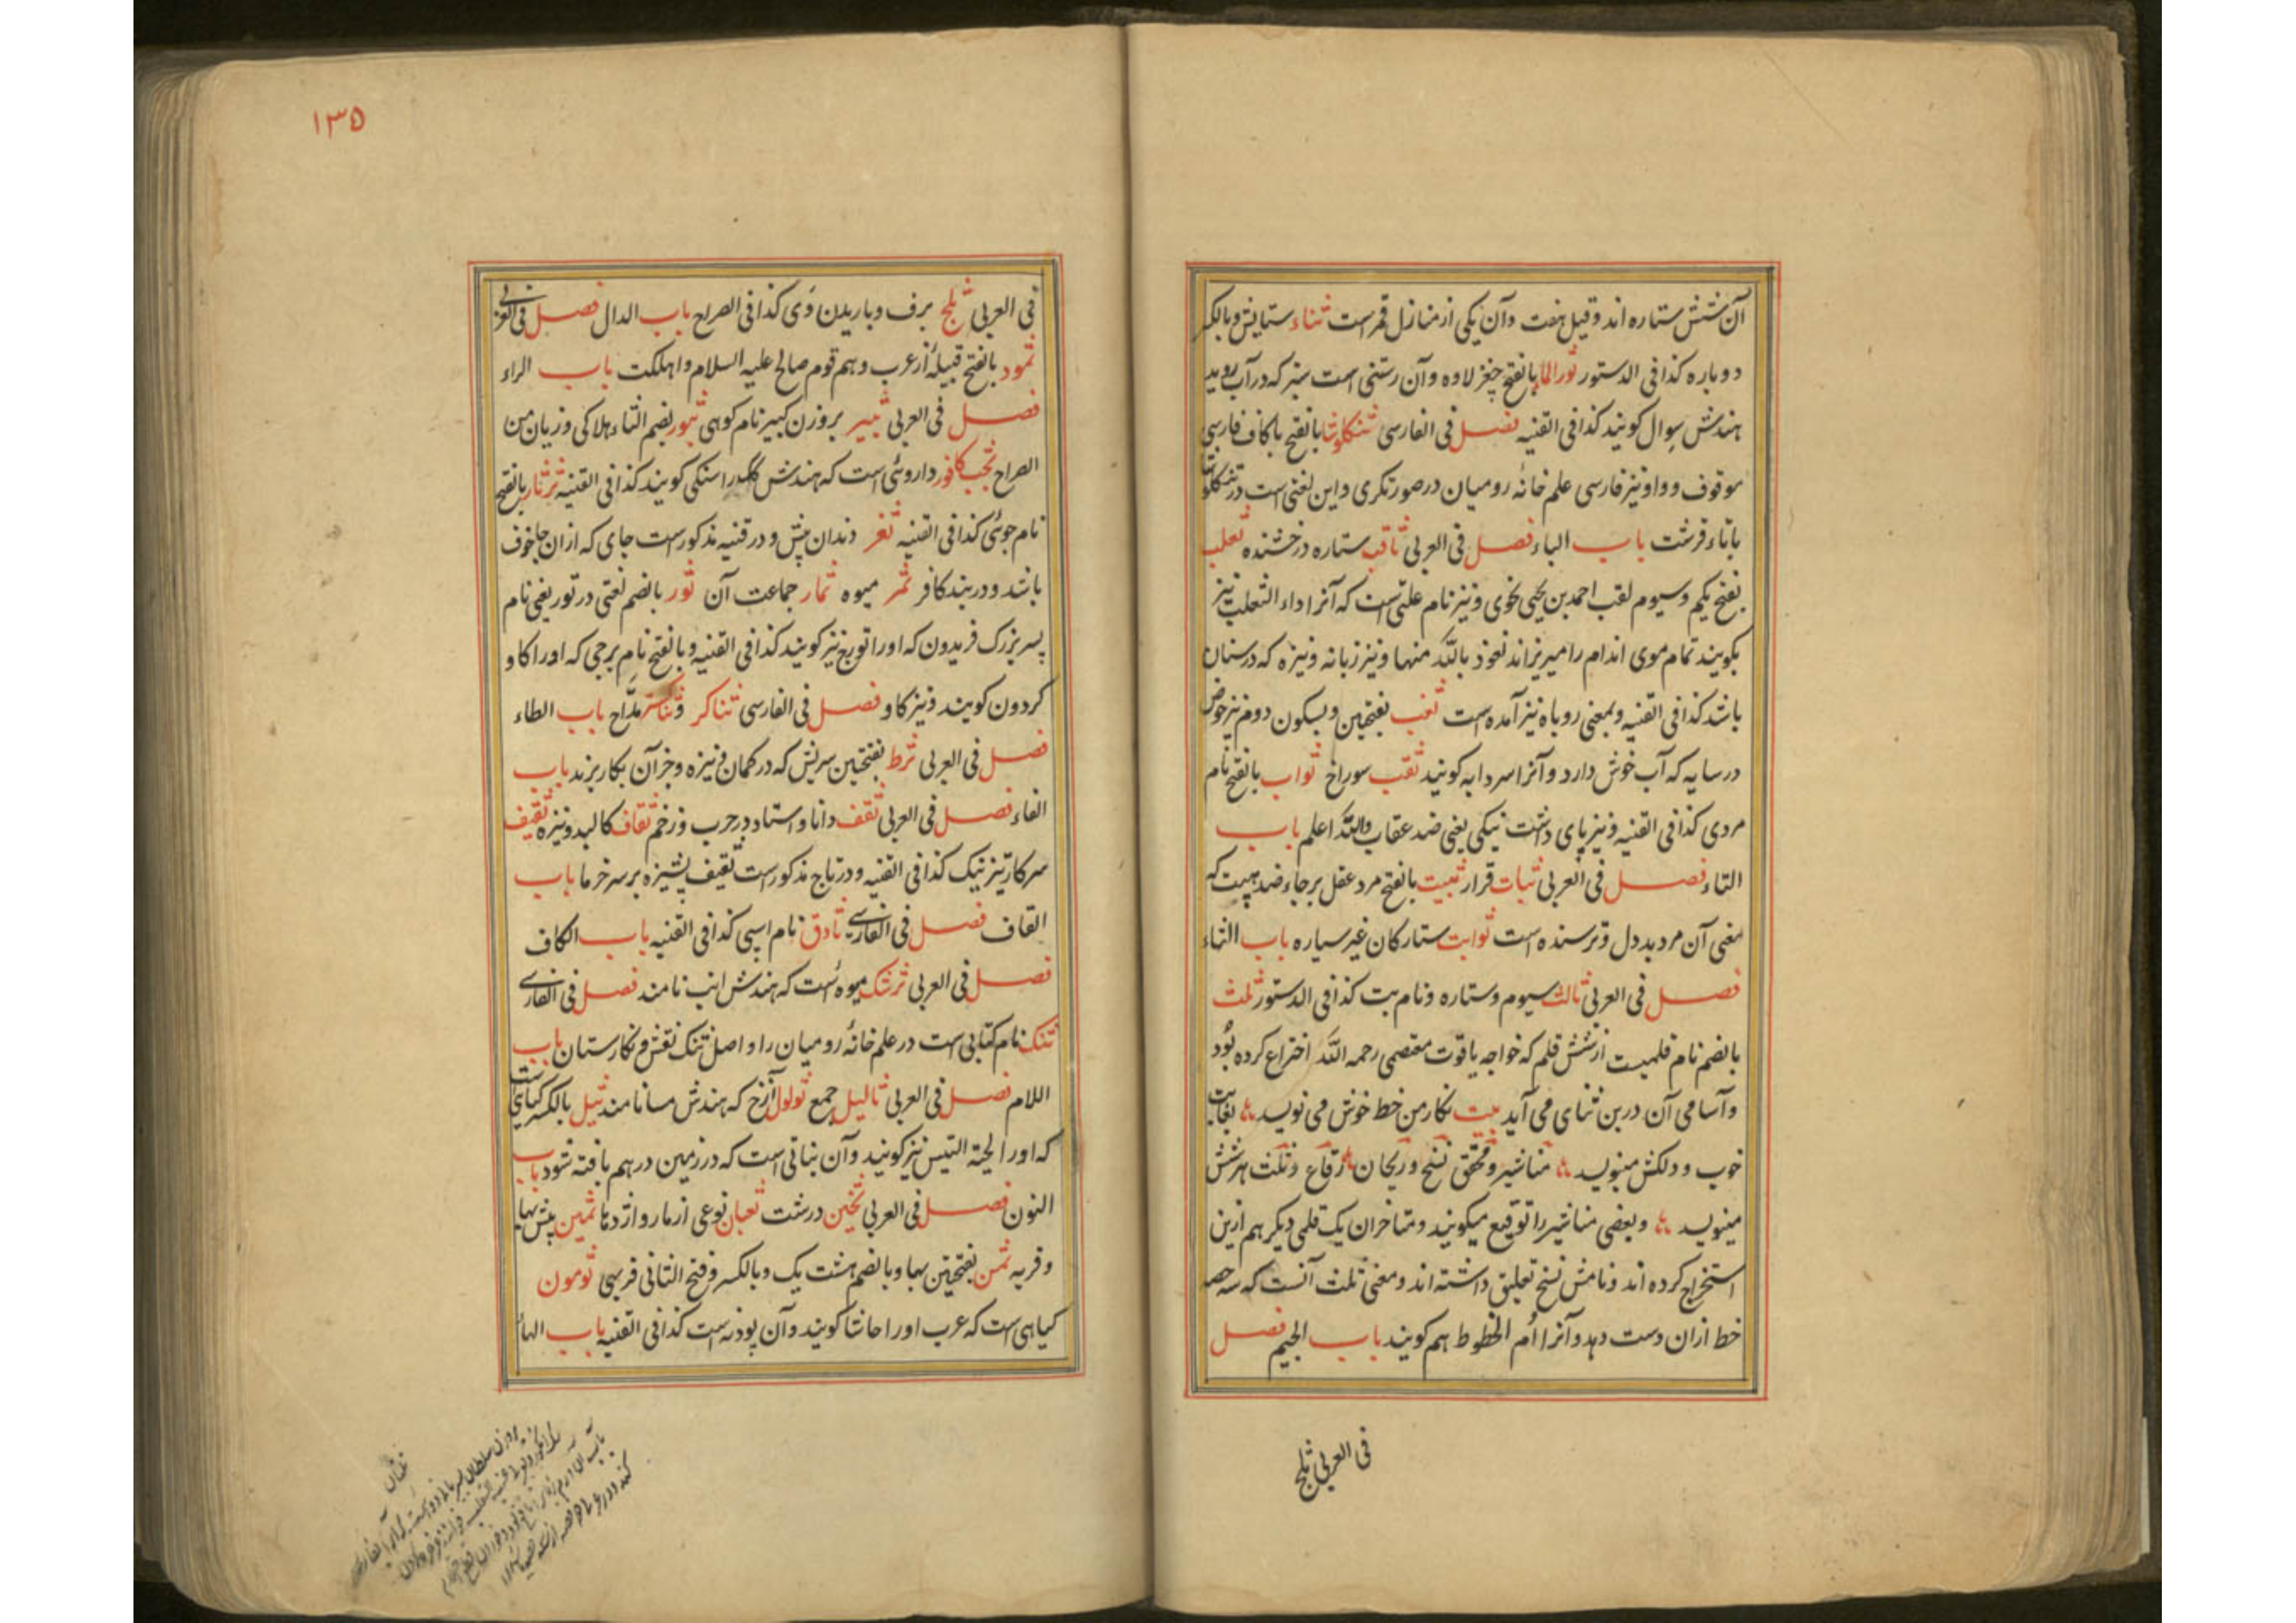 آن شش ستاره اند و قیل هفت وآن یکی از منازل قمر است ثناء ستایش و بالکسر
دوباره کذا فی الدستور ثور الماء بالفتح چغز لاوه وآن رستنی است سبز که در آب روید
هندش سوال کویند کذا فی القنیه فصل فی الفارسی ثنکلوشا بالفتح باکاف فارسی
موقوف و واو نیز فارسی علم خانهٔ رومیان در صورتکری و این لغتی است در تنکلوشا
باتاء قرشت باب الباء فصل فی العربی ثاقب ستاره درخشنده ثعلب
بفتح یکم وسیوم لقب احمد بن یحیی نحوی ونیز نام علتی است که آنرا داء الثعلب نیز
بکویند تمام موی اندام را میریزاند نعوذ باللّه منها ونیز زبانه ونیزه که در سنان
باشد کذا فی القنیه وبمعنی روباه نیز آمده است ثغب بفتحین وبسکون دوم نیز حوض
در سایه که آب خوش دارد و آنرا سردابه کویند ثقب سوراخ ثواب بالفتح نام
مردی کذا فی القنیه ونیز پای داشت نیکی یعنی ضد عقاب واللّه اعلم باب
التاء فصل فی العربی ثبات قرار ثبیت بالفتح مرد عقل برجاء ضد هبیت که
معنی آن مرد بد دل وترسنده است ثوابت ستارکان غیر سیاره باب الثاء
فصل فی العربی ثالث سیوم وستاره ونام بت کذا فی الدستور ثلث
بالضم نام قلمیست از شش قلم که خواجه یاقوت معتصمی رحمه اللّه اختراع کرده بود
وآسامی آن درین ثنای می آید بیت نکار من خط خوش می نویسد بغایت
خوب و دلکش مینویسد مناشیر و محقق نسخ و ریحان رقاع و ثلث هر شش
مینویسد و بعضی مناشیر را توقیع میکویند ومتاخران یک قلمی دیکر هم ازین
استخراج کرده اند ونامش نسخ تعلیق داشته اند ومعنی ثلث آنست که سه حصه
خط ازان دست دهد وآنرا اُم الخطوط هم کویند باب الجیم فصل
فی العربی ثلج
۱۳۵
فی العربی ثلج برف وباریدن وی کذا فی الصراح باب الدال فصل فی العربی
ثمود بالفتح قبیلهٔ از عرب وهم قوم صالح علیه السلام واهلکت باب الراء
فصل فی العربی ثبیر بروزن کبیر نام کوهی ثبور بضم الثاء هلاکی وزیان من
الصراح ثجب کافور داروئی است که هندش کندراسنکی کویند کذا فی القنیه ثرثار بالفتح
نام جوئی کذا فی القنیه ثغر دندان پیش و در قنیه مذکور است جای که ازان جا خوف
باشد و دربند کافر ثمر میوه ثمار جماعت آن ثور بالضم لغتی در تور یعنی نام
پسر بزرک فریدون که اورا تورج نیز کویند کذا فی القنیه و بالفتح نام برجی که اورا کاو
کردون کویند ونیز کاو فصل فی الفارسی ثناکر وثناکستر مدّاح باب الطاء
فصل فی العربی ثرط بفتحین سریش که در کمان ونیزه وجز آن بکار برند باب
الفاء فصل فی العربی ثقف دانا و استاد در حرب و زخم ثقاف کالبد ونیزه ثقیف
سرکا تیز نیک کذا فی القنیه و در تاج مذکور است ثقیف پشیزه بر سر خرما باب
القاف فصل فی الفارسی ثادق نام اسپی کذا فی القنیه باب الکاف
فصل فی العربی ثرشک میوه است که هندش انب نامند فصل فی الفارسی
ثنک نام کتابی است در علم خانهٔ رومیان را و اصل تنک نقش ونکارستان باب
اللام فصل فی العربی ثالیل جمع ثولول آزخ که هندش مسا نامند ثیل بالکسر کیاهی است
که اورا لحیة التیس نیز کویند وآن نباتی است که در زمین درهم بافته شود باب
النون فصل فی العربی ثخین درشت ثعبان نوعی از مار و اژدها ثمین بیش بها
وفربه ثمن بفتحتین بها وبالضم هشت یک وبالکسر وفتح الثانی فربهی ثومون
کیاهی است که عرب اورا حاشا کویند وآن پودنه است کذا فی القنیه باب الهاء